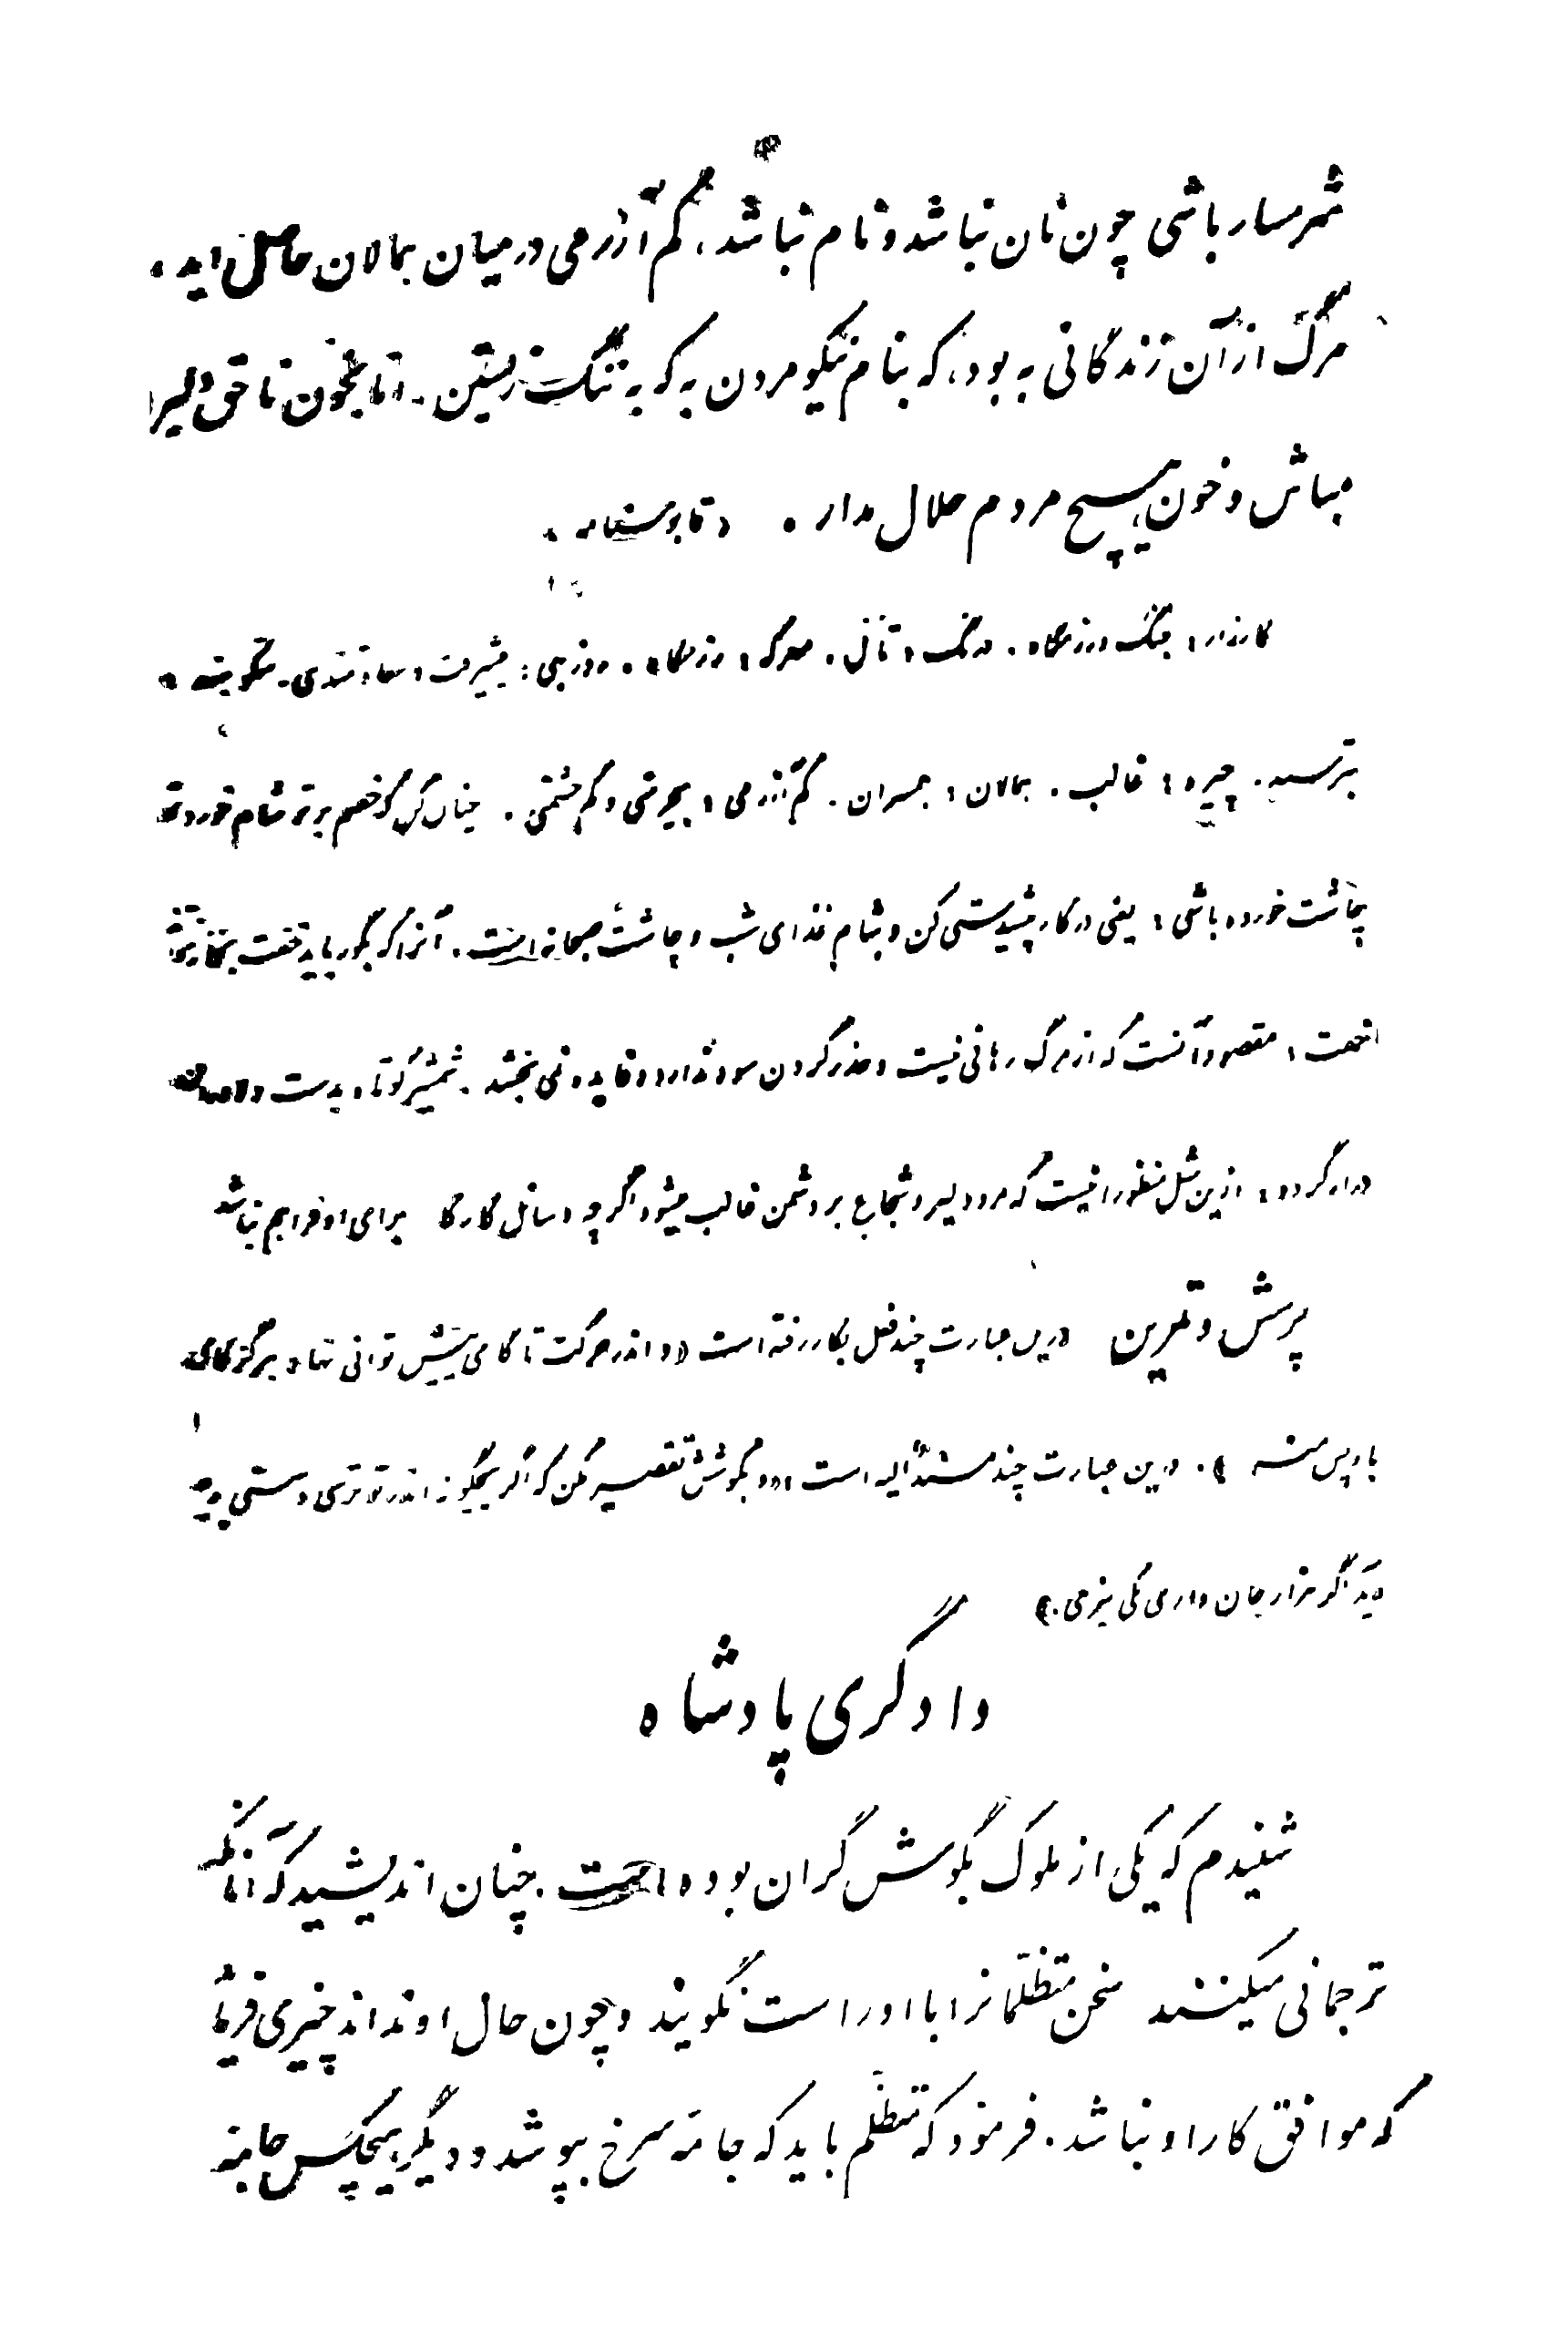 شرمسار باشی چون نان نباشد و نام نباشد، کم آزرمی در میان همالان حاصل اید.
مرگ از آن زندگانی به بود، که بنام نیکو مردن به که به ننگ زیستن. اما بخون ناحق دلیر
مباش و خون هیچ مردم حلال مدار. «قابوسنامه»
کارزار: جنگ و رزمگاه. درنگ: تأنی. معرکه: رزمگاه. روز بهی: پیشرفت و سعادتمندی. شکوهید:
بترسید. چیره: غالب. همالان: همسران. کم آزرمی: بیحرمتی و کم چشمی. چنان کن که خصم بر تو شام خورد تو
چاشت خورده باشی: یعنی در کار پیشدستی کن و شام غذای شب و چاشت صبحانه است. آنرا که بگور باید خفت بخانه نتوان
خفت: مقصود آنست که از مرگ رهائی نیست و حذر کردن سود ندارد و فایده نمی بخشد. شمشیر کوتاه بدست دلاوران
دراز گردد: ازین مثل منظور اینست که مرد دلیر و شجاع بر دشمن غالب میشود اگر چه وسائل کار کا برای او فراهم نباشد
پرسش و تمرین درین عبارت چند فعل بکار رفته است «و اندر معرکه تا گامی پیش توانی نهاد هرگز گامی
باز پس منه». درین عبارت چند مسندالیه است «و در کوشش تقصیر مکن که اگر هیچگونه اندر تو ترسی و سستی پدید
آید اگر هزار جان داری یکی نبری.»
دادگری پادشاه
شنیدم که یکی از ملوک بگوش گران بوده است. چنان اندیشید که آنانکه
ترجمانی میکنند سخن متظلمانرا با او راست نگویند و چون حال او نداند چیزی فرماید
که موافق کار او نباشد. فرمود که متظلم باید که جامه سرخ بپوشد و دیگر هیچکس جامه